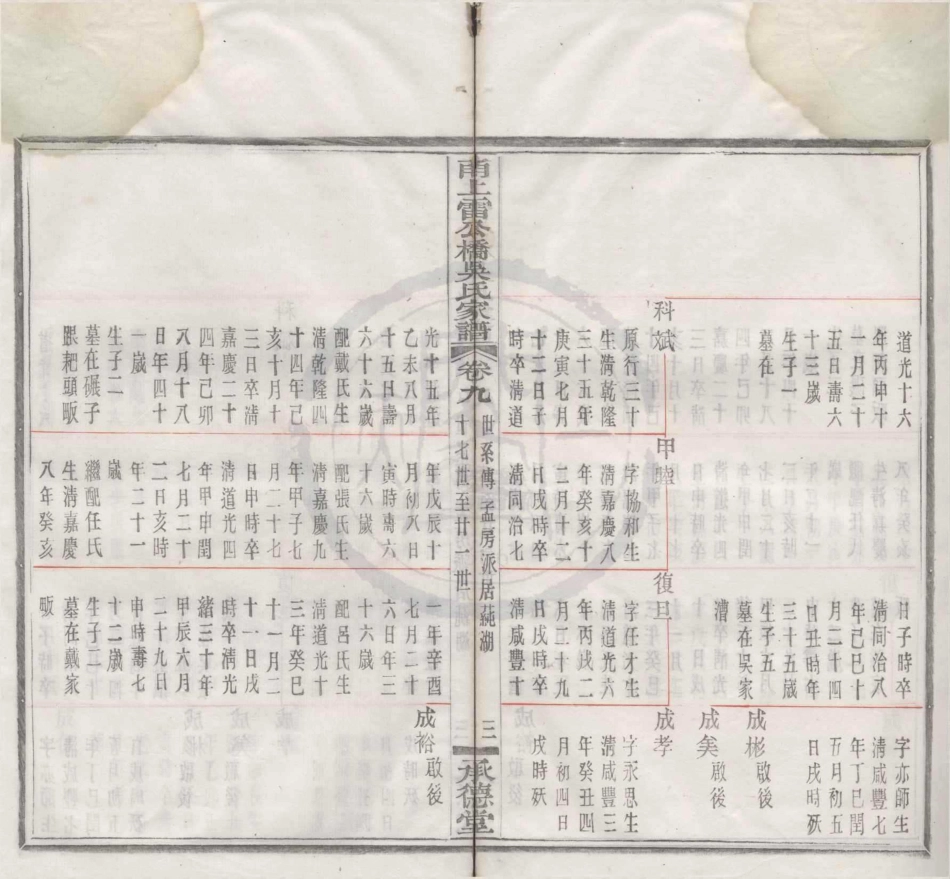 道光十六
年丙申十
一月二十
五日壽六
十三歲
生子一
墓在
科斌
原行三十
生淸乾隆
三十五年
庚寅七月
十二日子
時卒淸道
光十五年
乙未八月
十五日壽
六十六歲
配戴氏生
淸乾隆四
十四年己
亥十月十
三日卒淸
嘉慶二十
四年己卯
八月十八
日年四十
一歲
生子二
墓在子
耙頭畈
甲
字協和生
淸嘉慶八
年癸亥十
二月十二
日戌時卒
淸同治七
年戊辰十
月初八日
寅時壽六
十六歲
配張氏生
淸嘉慶九
年甲子七
月二十七
日申時卒
淸道光四
年甲申閏
七月二十
二日亥時
年二十一
歲
繼配任氏
生淸嘉慶
八年癸亥
日子時卒
淸同治八
年己巳十
月二十四
日丑時年
三十五歲
生子五
墓在吳家
漕
復旦
字任才生
淸道光六
年丙戌二
月二十九
日戌時卒
淸咸豐十
一年辛酉
七月二十
六日年三
十六歲
配呂氏生
淸道光十
三年癸巳
十一月二
十一日戌
時卒淸光
緒三十年
甲辰六月
二十九日
申時壽七
十二歲
生子二
墓在戴家
畈
字亦師生
淸咸豐七
年丁巳閏
五月初五
日戌時殀
成彬 啟後
成奐 啟後
成孝
字永思生
淸咸豐三
年癸丑四
月初四日
戌時殀
成裕 啟後
南上雷公橋吳氏家譜 卷九
世系傳孟房派居蒓湖
十七世至廿一世
三
承德堂